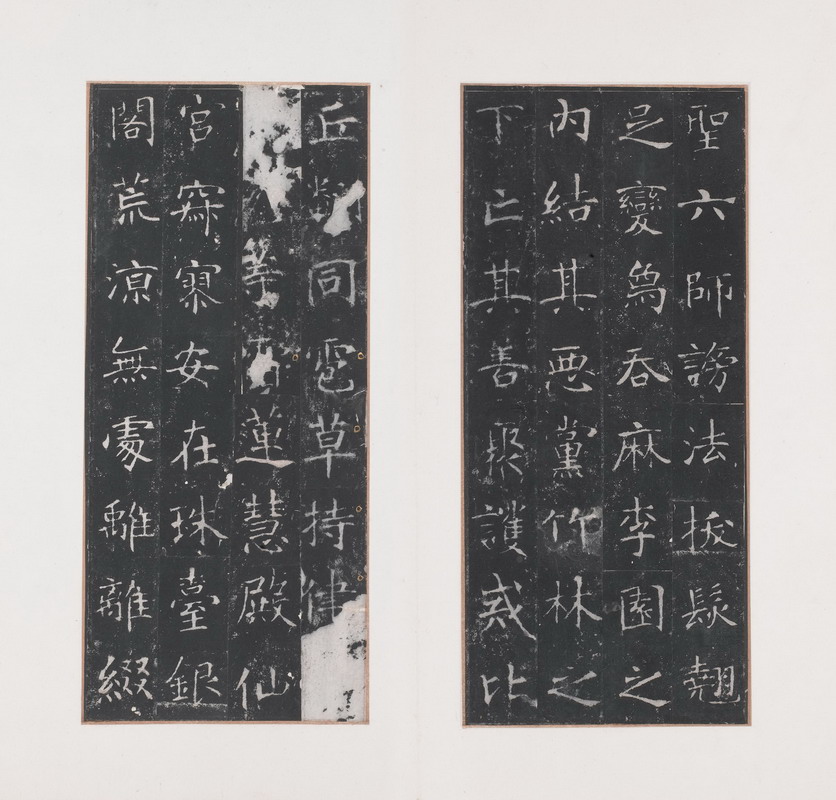 聖六師謗法拔髮翹
足變為吞麻李園之
內結其惡黨竹林之
下亡其善聚護戒比
丘同雹草持律
等蓮慧殿仙
宮寂寥安在珠臺銀
閣荒凉無處離離綴